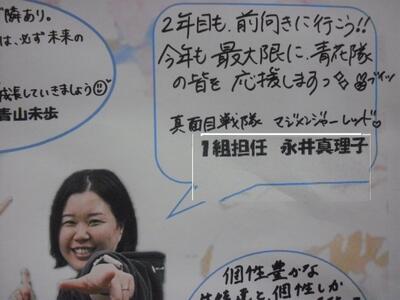 隣あり。
は、必ず未来の
成長していきましょう
青山未歩
2年目も、前向きに行こう!!
今年も最大限に、青花隊
の皆を応援しまっす ブイッ
真面目戦隊 マジメンジャーレッド♡
1組担任 永井真理子
個性豊かな
と、個性しか